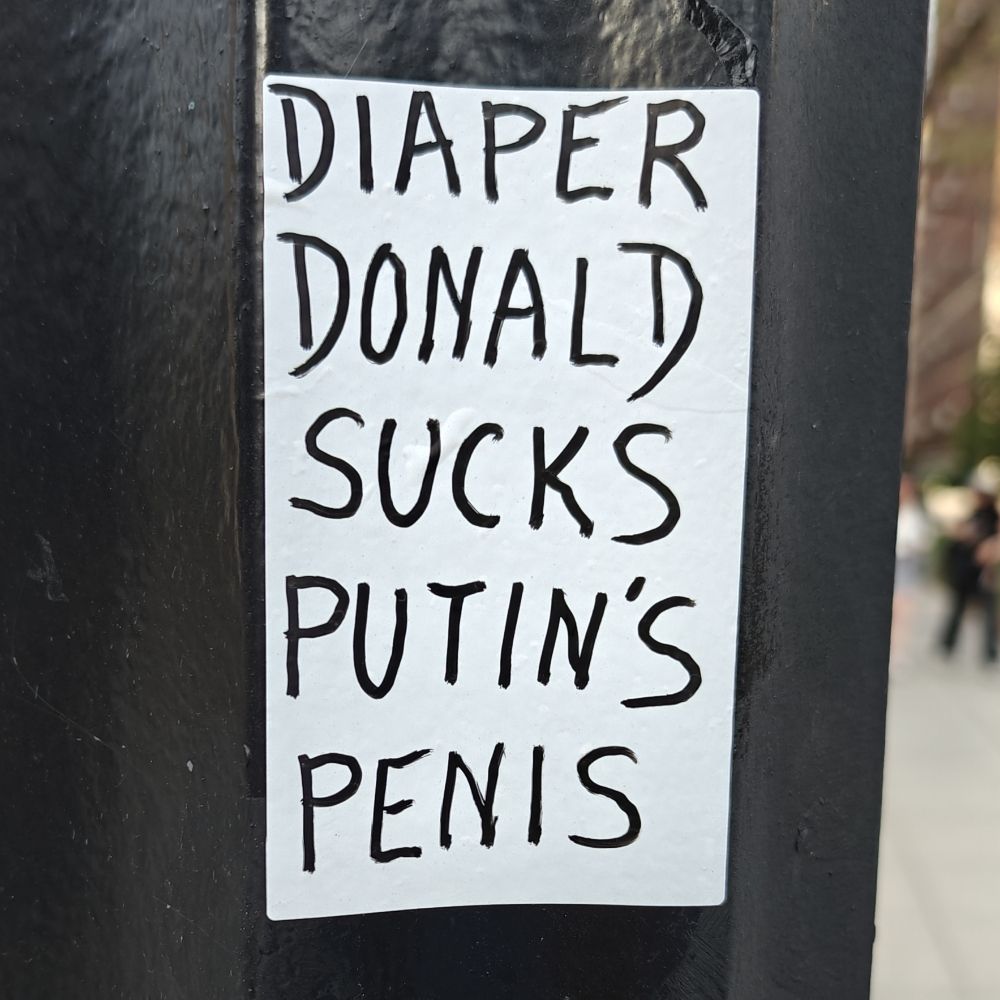 DIAPER
DONALD
SUCKS
PUTIN'S
PENIS